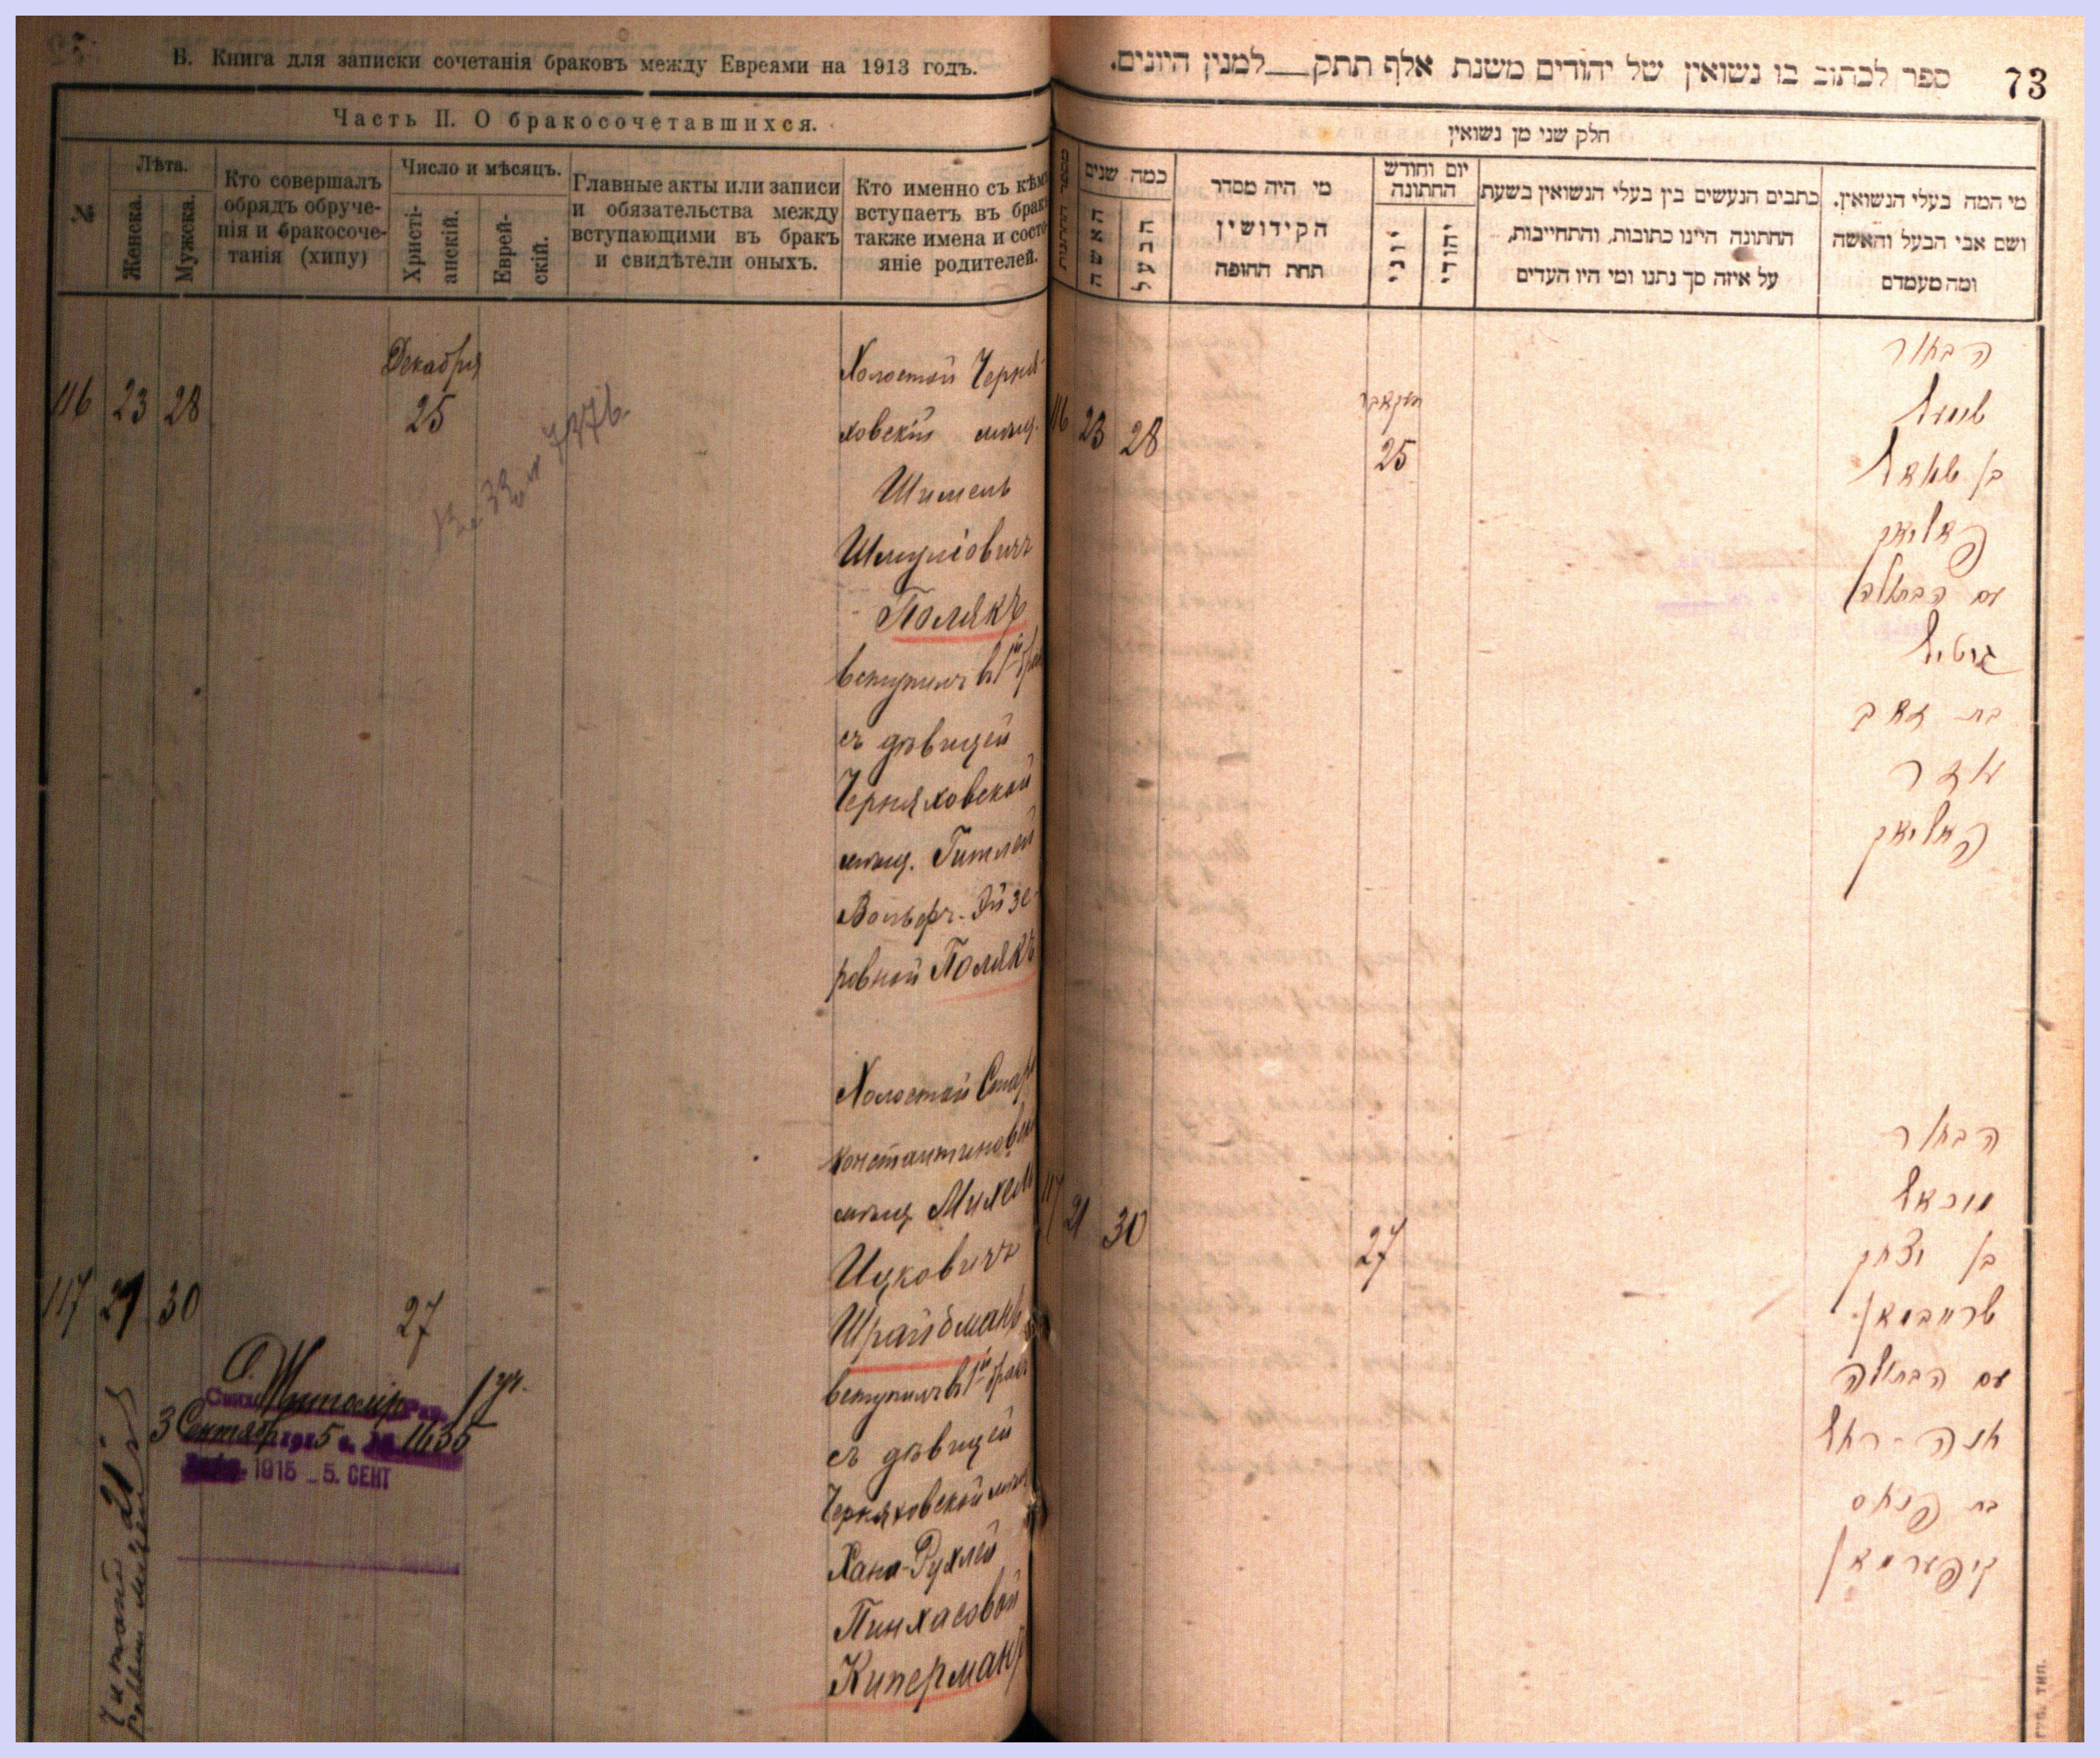 В. Книга для записки сочетанія браковъ между Евреями на 1913 годъ.
Часть II. О бракосочетавшихся.
№
Лѣта.
Женска.
Мужска.
Кто совершалъ
обрядъ обруче-
нія и бракосоче-
танія (хипу)
Число и мѣсяцъ.
Христі-
анскій.
Еврей-
скій.
Главные акты или записи
и обязательства между
вступающими въ бракъ
и свидѣтели оныхъ.
Кто именно съ кѣмъ
вступаетъ въ бракъ
также имена и состо-
яніе родителей.
Декабря
116 23 28 25
Холостой Черня-
ховскій мѣщ.
Шимель
Шмуліовичъ
Полякъ
вступилъ въ 1й бракъ
съ дѣвицей
Черняховской
мѣщ. Гитлей
Вольфъ-Эйзе-
ровной Полякъ
Холостой Старо
константиновск
мѣщ. Михель
Ицковичъ
117 21 30 27
Шрайбманъ
вступилъ въ 1й бракъ
съ дѣвицей
Черняховской мѣщ
Хана-Рухлей
Пинхасовой
Киперманъ
Житомір
1 уч.
3 Сентября 1915 г. № 1635
1915 - 5. СЕНТ
21
ספר לכתוב בו נשואין של יהודים משנת אלף תתק___למנין היונים.
73
חלק שני מן נשואין
מספר החתנות
כמה שנים
האשה
הבעל
מי היה מסדר
הקידושין
תחת החופה
יום וחודש
החתונה
יוני
יהודי
כתבים הנעשים בין בעלי הנשואין בשעת
החתונה היינו כתובות, והתחייבות,
על איזה סך נתנו ומי היו העדים
מי המה בעלי הנשואין.
ושם אבי הבעל והאשה
ומה מעמדם
דעקאבר
116 23 28 25
הבחור
שימעל
בן שמואל
פאליאק
עם הבתולה
גיטיל
בת זאב
עזר
פאליאק
הבחור
117 21 30 27
מיכאל
בן יצחק
שרייבמאן
עם הבתולה
חנה-רחל
בת פנחס
קיפערמאן
ГУБ. ТИП.